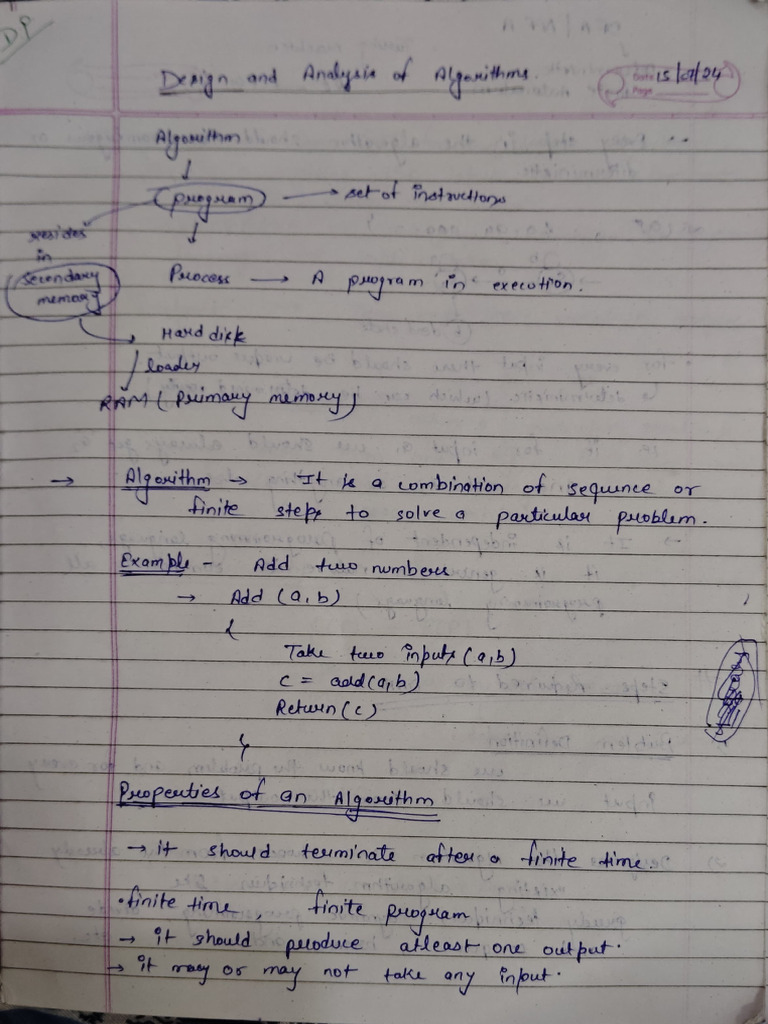 Design and Analysis of Algorithms.
Date 15/07/24
Page
Algorithm
↓
program → set of instructions
resides
in
secondary
memory
↓
Process → A program in execution.
Hard disk
loader
RAM (Primary memory)
→ Algorithm → It is a combination of sequence or
finite steps to solve a particular problem.
Example - Add two numbers
→ Add (a,b)
{
Take two inputs (a,b)
c = add(a,b)
Return (c)
}
Properties of an Algorithm
→ it should terminate after a finite time.
• finite time, finite program
→ it should produce atleast one output.
→ it may or may not take any input.